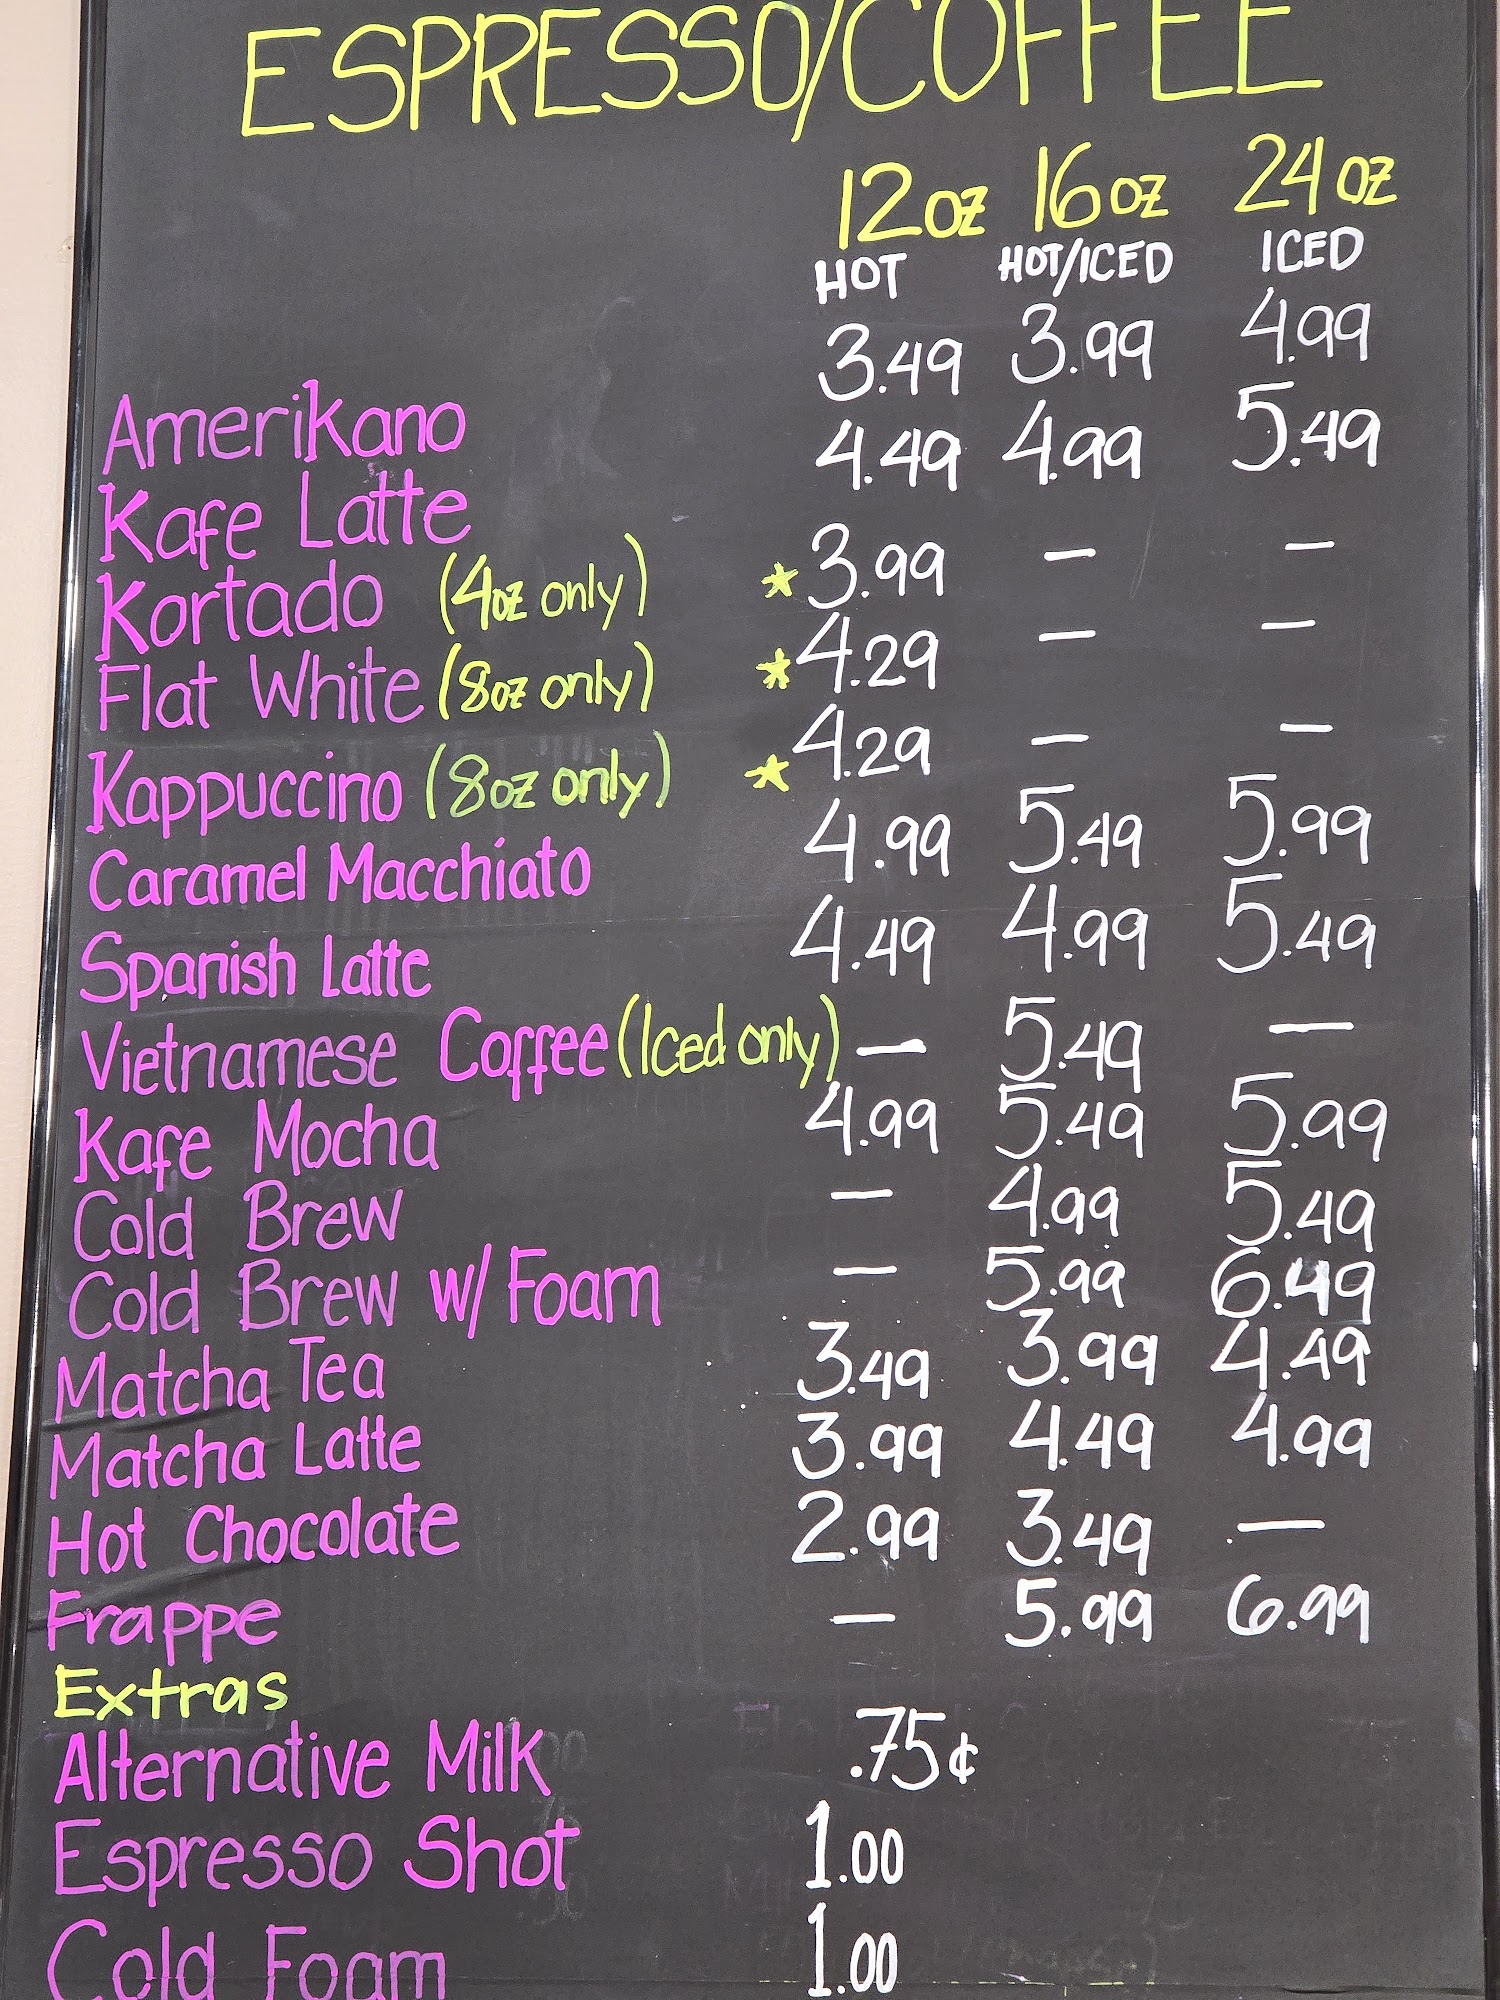 ESPRESSO/COFFEE
12oz 16oz 24oz
HOT HOT/ICED ICED
Amerikano 3.49 3.99 4.99
Kafe Latte 4.49 4.99 5.49
Kortado (4oz only) *3.99 — —
Flat White (8oz only) *4.29 — —
Kappuccino (8oz only) *4.29 — —
Caramel Macchiato 4.99 5.49 5.99
Spanish Latte 4.49 4.99 5.49
Vietnamese Coffee (Iced only) — 5.49 —
Kafe Mocha 4.99 5.49 5.99
Cold Brew — 4.99 5.49
Cold Brew w/ Foam — 5.99 6.49
Matcha Tea 3.49 3.99 4.49
Matcha Latte 3.99 4.49 4.99
Hot Chocolate 2.99 3.49 —
Frappe — 5.99 6.99
Extras
Alternative Milk .75¢
Espresso Shot 1.00
Cold Foam 1.00